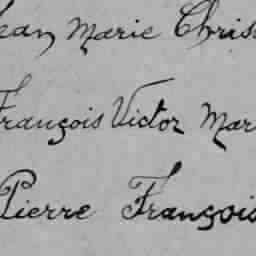 Jean Marie Chris
François Victor Mar
Pierre François